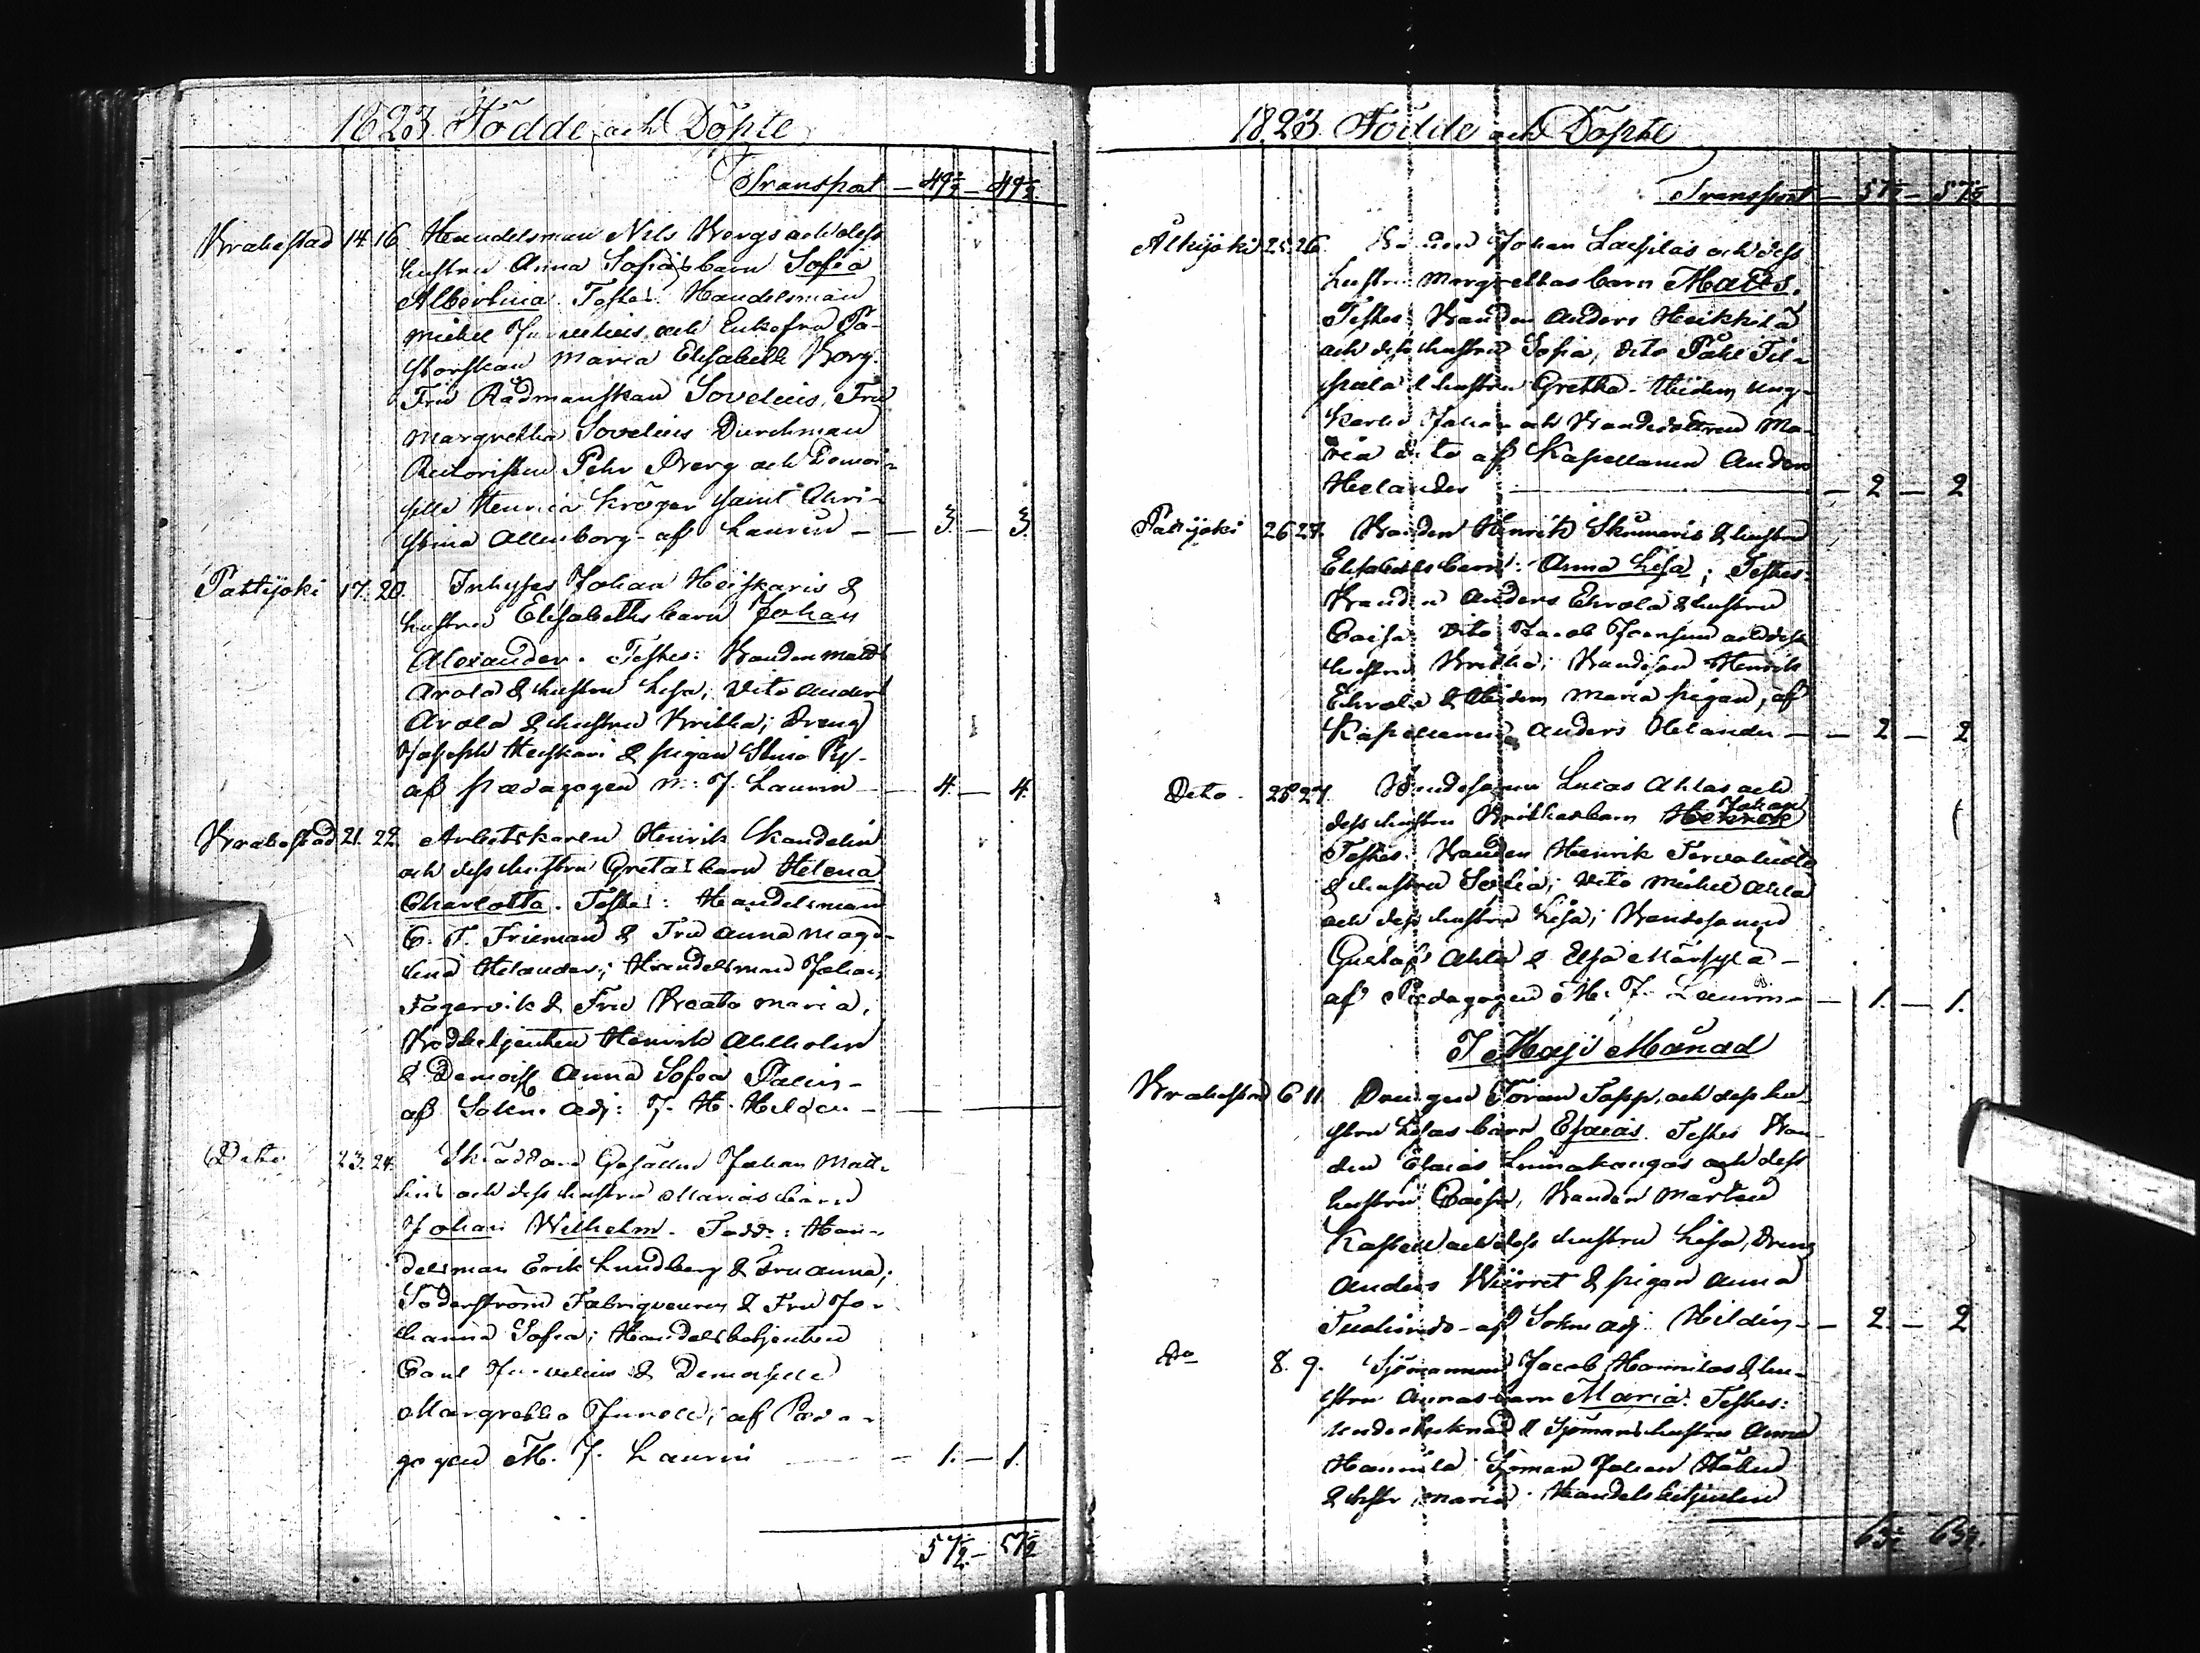 1823. Födde och Döpte
Transport — 49½ — 49½.
Brahestad 14. 16. Handelsman Nils Bergs och dess
hustru Anna Sofias barn Sofia
Albertina. Testes: Handelsman
Michel Junelius och Enkefru Pa-
storskan Maria Elisabeth Borg.
Fru Rådmanskan Sovelius, Fru
Margretha Sovelius Durchman
Auctoristen Pehr Berg och Demoi-
selle Henrica Kröger samt Chri-
stina Allenborg - af Laurin — 3. — 3.
Pattijoki 17. 20. Inhyses Johan Heiskaris &
hustru Elisabeths barn Johan
Alexander. Testes: Bonden Matts
Arola & hustru Lisa; Dito Anders
Arola & hustru Britha; Dreng
Joseph Heiskari & pigan Stina
af pædagogen M: J. Laurin — 4. — 4.
Brahestad 21. 22. Arbetskarlen Henrik Kandelin
och dess hustru Gretas barn Helena
Charlotta. Testes: Handelsman
C. F. Frieman & Fru Anna Magda-
lena Helander; Handelsman Johan
Fagervik & Fru Beata Maria,
Bodbetjenten Henrik Ahlholm
& Demois: Anna Sofia
af Sokne Adj: J. H. Helden — —
Dito 23. 24. Skräddare Gesällen Johan Matt-
lins och dess hustru Marias barn
Johan Wilhelm. Tedd: Han-
delsman Erik Lundberg & Fru Anna;
Söderström Fabriqueuren & Fru Jo-
hanna Sofia; Handelsbetjenten
Carl Junelius & Demoiselle
Margretha Junell; af Pæda-
gogen M. J. Laurin — 1. — 1.
57½. — 57½
1823. Födde och Döpte
Transport — 57½ — 57½
Olkijoki 25. 26. Bonden Johan Lassilas och dess
hustru Margrethas barn Matts.
Testes: Bonden Anders Heikkilä
och dess hustru Sofia, dito Påhl
& hustru Gretha. Vidare ung-
Karlen Johan och Bondedottren Ma-
ria dito af Kapellanen Anders
Helander — 2 — 2
Pattijoki 26 27. Bonden Henrik & hustru
Elisabeths barn: Anna Lisa; Testes:
Bonden Anders Ehrola & hustru
Caisa dito Jacob och dess
hustru Britha; Bondeson Henrik
Ehrola & Maria pigan, af
Kapellanen Anders Helander — 2 — 2
Dito - 26. 27. Bondesonen Lucas Ahlas och
dess hustru Brithas barn Johan
Henrik
Testes: Bonden Henrik Tervaluoto
& hustru Sofia; Dito Michel Ahla
och dess hustru Lisa; Bondesonen
Gustafs Ahla & Elsa Märsylä —
af Pædagogen M: J. Laurin — 1. — 1.
I Maji Månad
Brahestad 6 11. Drengen Göran Sapp, och dess hu-
stru Lisas barn Esaias. Testes Bon-
den Esaias Linnakangas och dess
hustru Caisa, Bonden Mårten
Kastell och dess hustru Lisa, Dreng
Anders Wiirret & pigan Anna
af Sokne Adj: Hildén — 2. — 2
Do 8. 9. Sjömannen Jacob Hannilas & hu-
stru Annas barn Maria. Testes:
Undertecknad & Sjömans hustru Anna
Hannila Sjöman Johan
& hstr Maria Handels betjenten
63½ 63½.